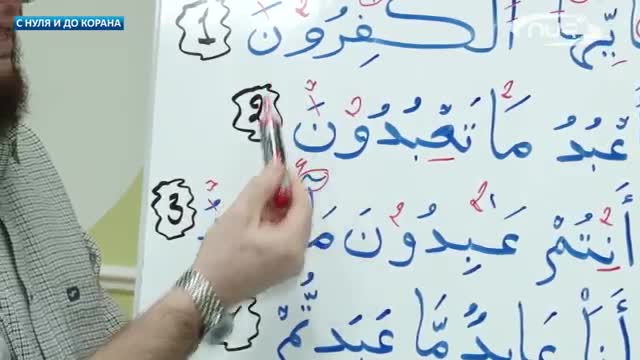 С НУЛЯ И ДО КОРАНА
ٱلْكَٰفِرُونَ 1
أَعْبُدُ مَا تَعْبُدُونَ 2
أَنتُمْ عَٰبِدُونَ 3
أَنَا۠ عَابِدٌ مَّا عَبَدتُّمْ